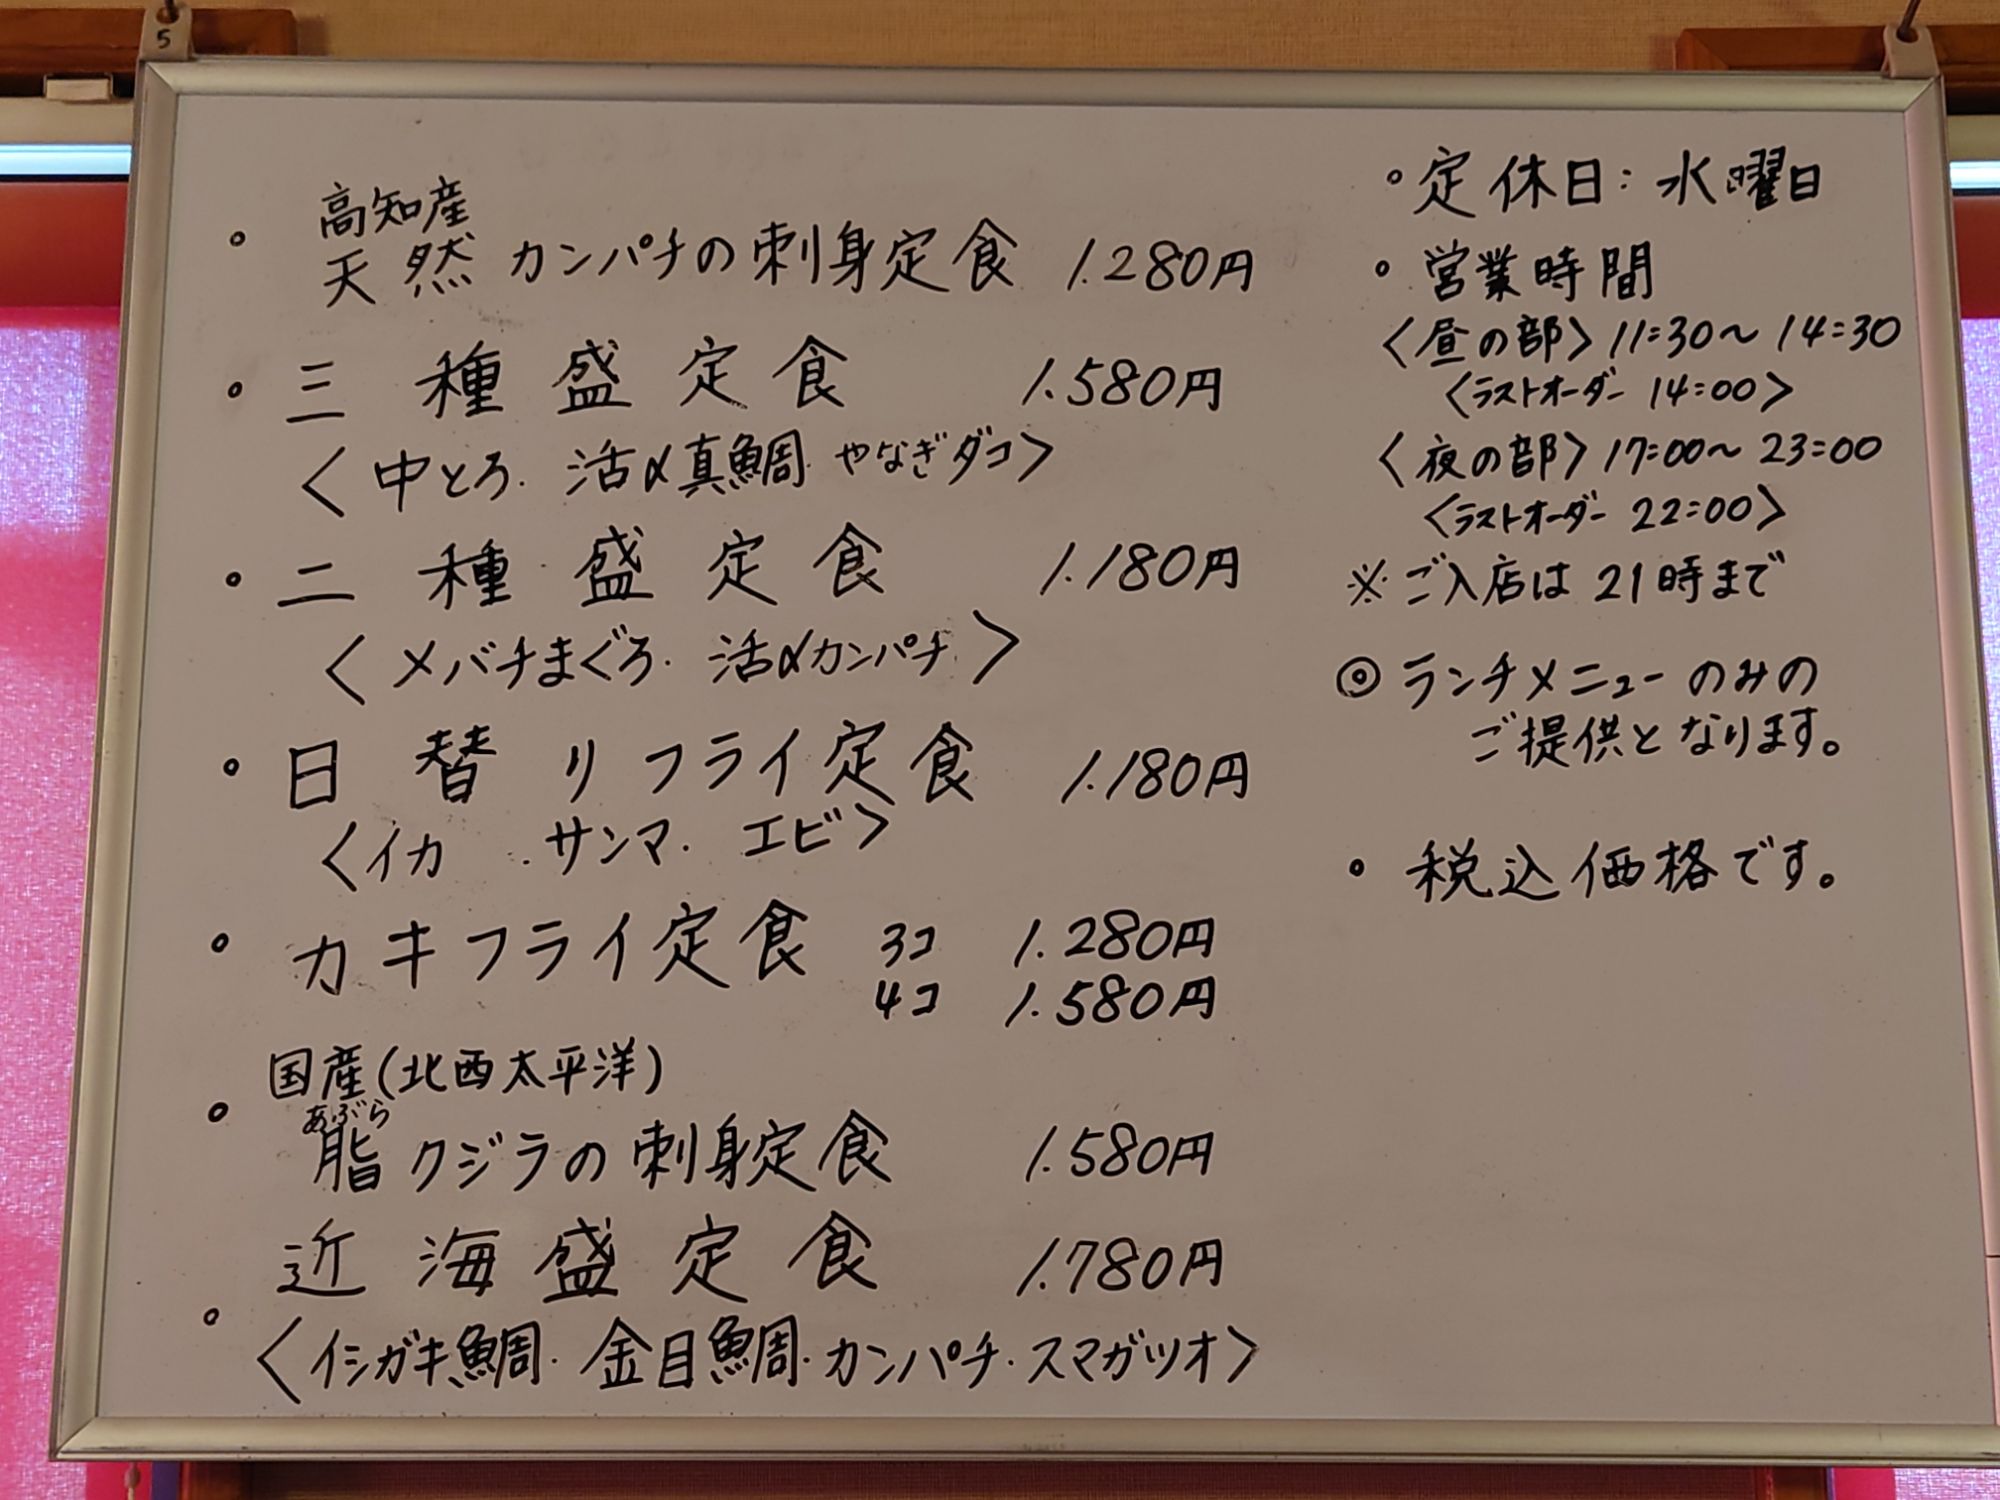 5
高知産
• 天然カンパチの刺身定食 1.280円
• 三種盛定食 1.580円
〈中とろ.活〆真鯛.やなぎダコ〉
• 二種盛定食 1.180円
〈メバチまぐろ.活〆カンパチ〉
• 日替りフライ定食 1.180円
〈イカ.サンマ.エビ〉
• カキフライ定食 3コ 1.280円
4コ 1.580円
国産(北西太平洋)
あぶら
• 脂クジラの刺身定食 1.580円
• 近海盛定食 1.780円
〈イシガキ鯛.金目鯛.カンパチ.スマガツオ〉
• 定休日:水曜日
• 営業時間
〈昼の部〉11:30〜14:30
〈ラストオーダー 14:00〉
〈夜の部〉17:00〜23:00
〈ラストオーダー 22:00〉
※ご入店は21時まで
◎ランチメニューのみの
ご提供となります。
• 税込価格です。